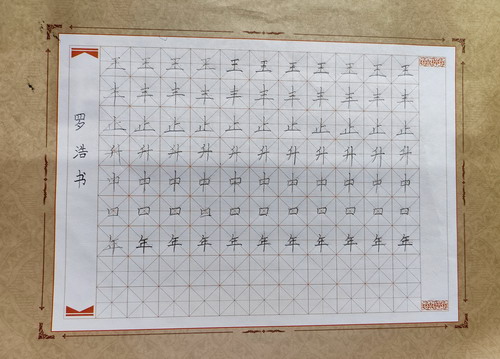 王王王王王王王王王王王
丰丰丰丰丰丰丰丰丰丰丰
止止止止止止止止止止止
升升升升升升升升升升升
中中中中中中中中中中中
四四四四四四四四四四四
年年年年年年年年年年年
罗浩书